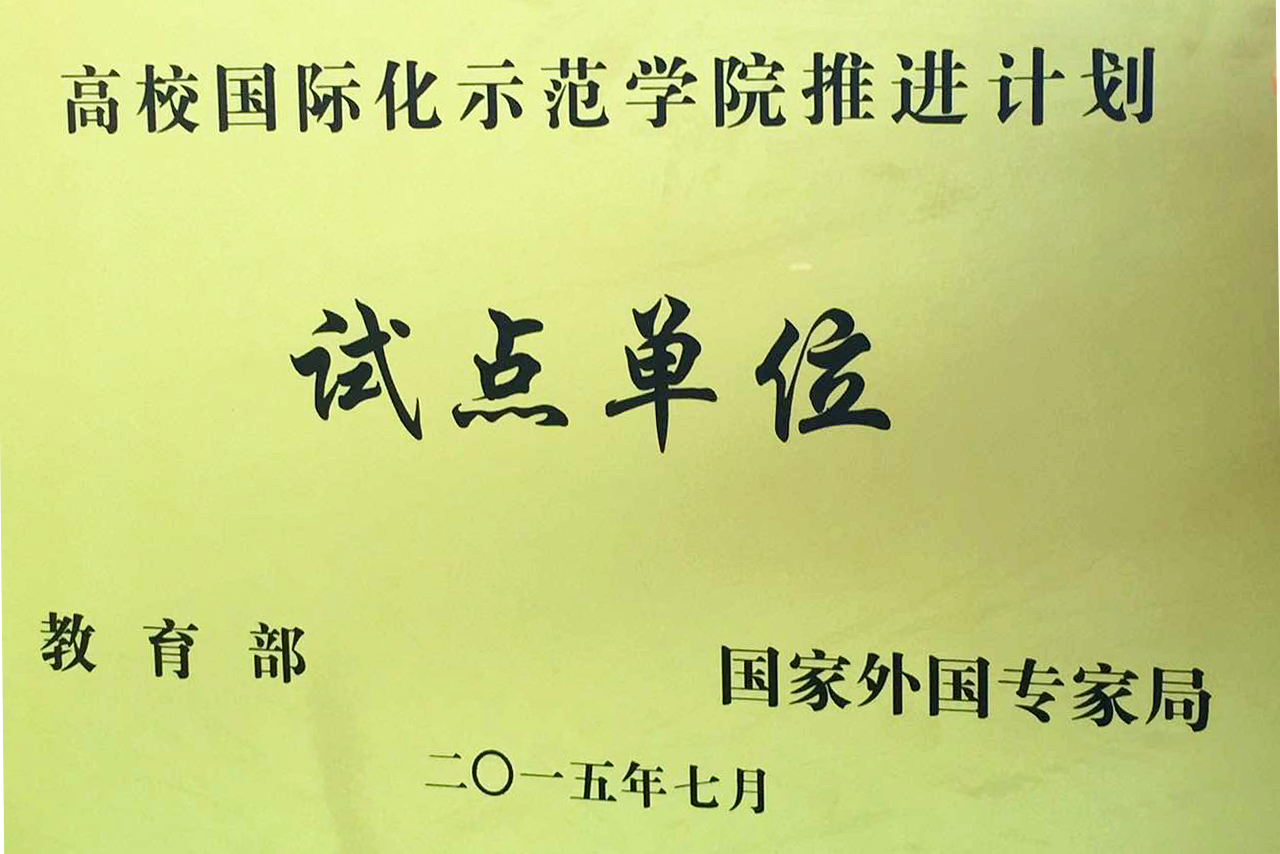 高校国际化示范学院推进计划
试点单位
教育部
国家外国专家局
二〇一五年七月